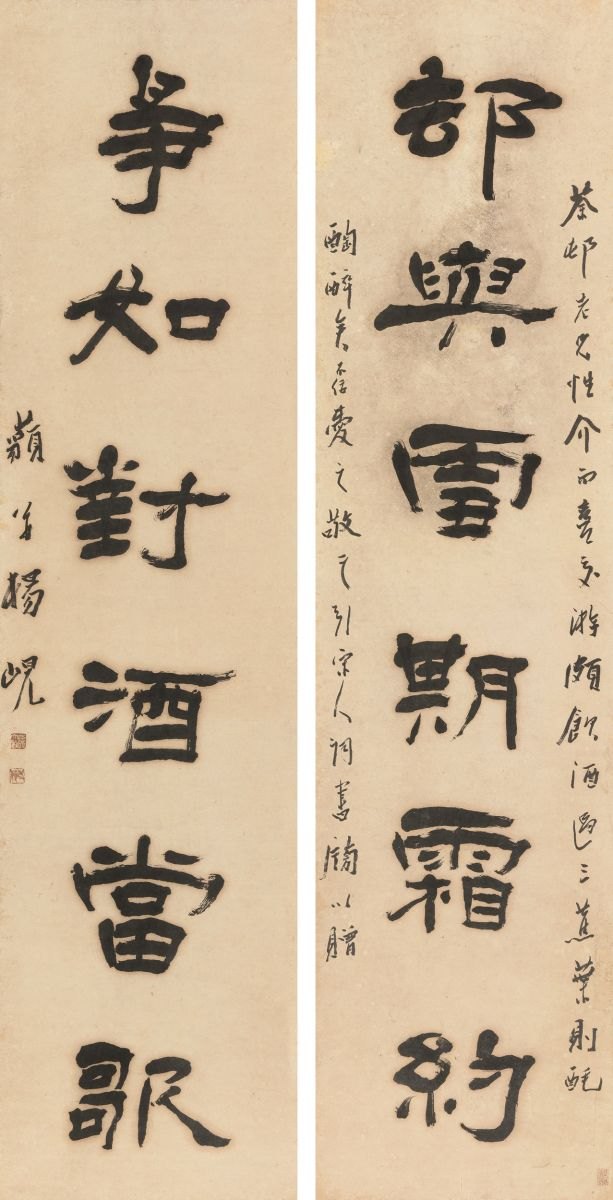 茶邨老兄性介而喜交游頗飲酒過三蕉葉則酕
却與雪期霜約
醄醉矣不佞愛之敬之引宋人詞書牓以贈
爭如對酒當歌
藐翁楊峴